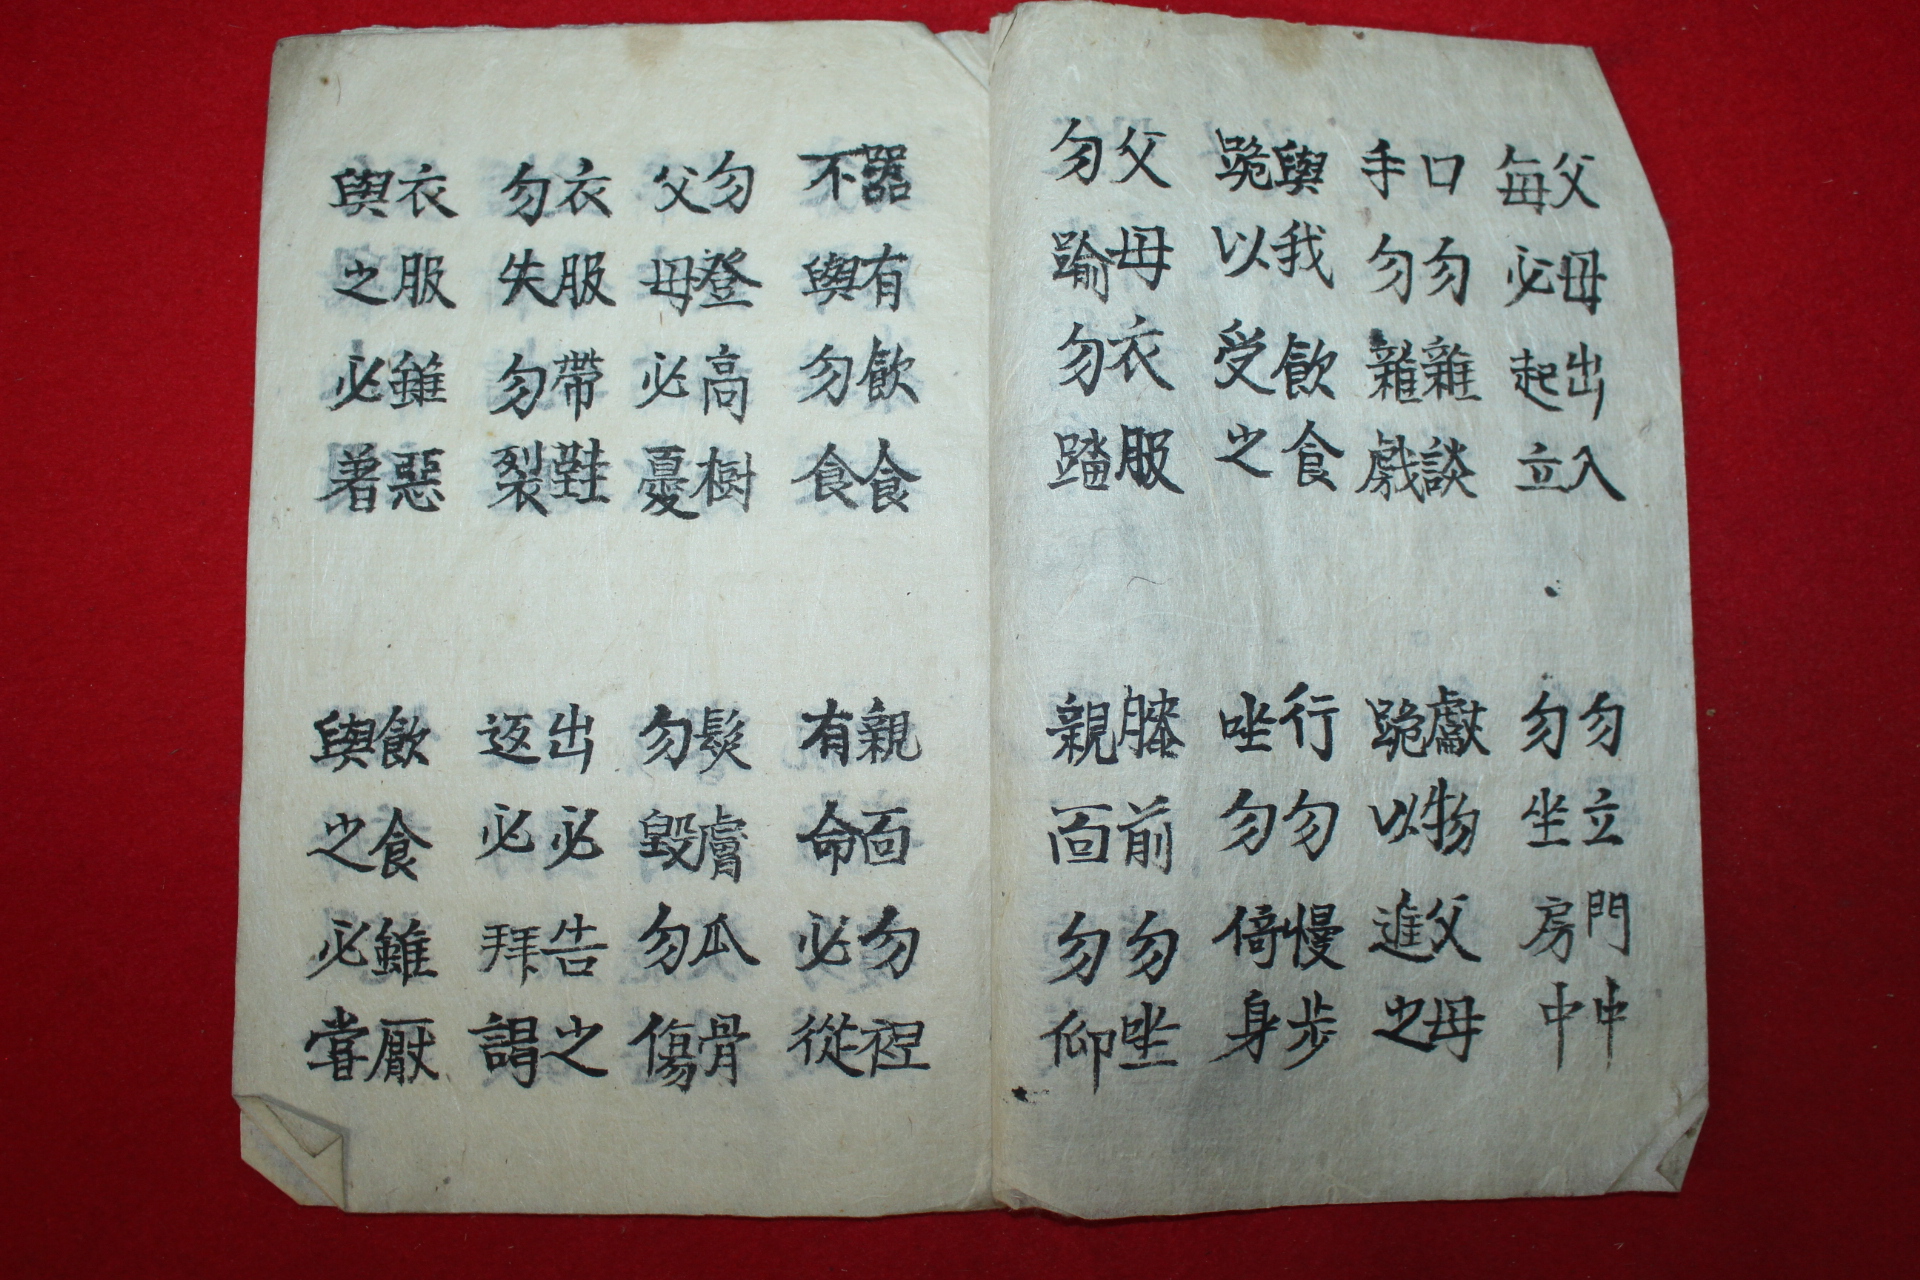 父母出入
每必起立
勿立門中
勿坐房中
口勿雜談
手勿雜戲
獻物父母
跪以進之
與我飮食
跪以受之
行勿慢步
唑勿倚身
父母衣服
勿踰勿踏
膝前勿唑
親面勿仰
器有飮食
不與勿食
親面勿裎
有命必從
勿登高樹
父母必憂
髮膚瓜骨
勿毀勿傷
衣服帶鞋
勿失勿裂
出必告之
返必拜謁
衣服雖惡
與之必著
飮食雖厭
與之必嘗